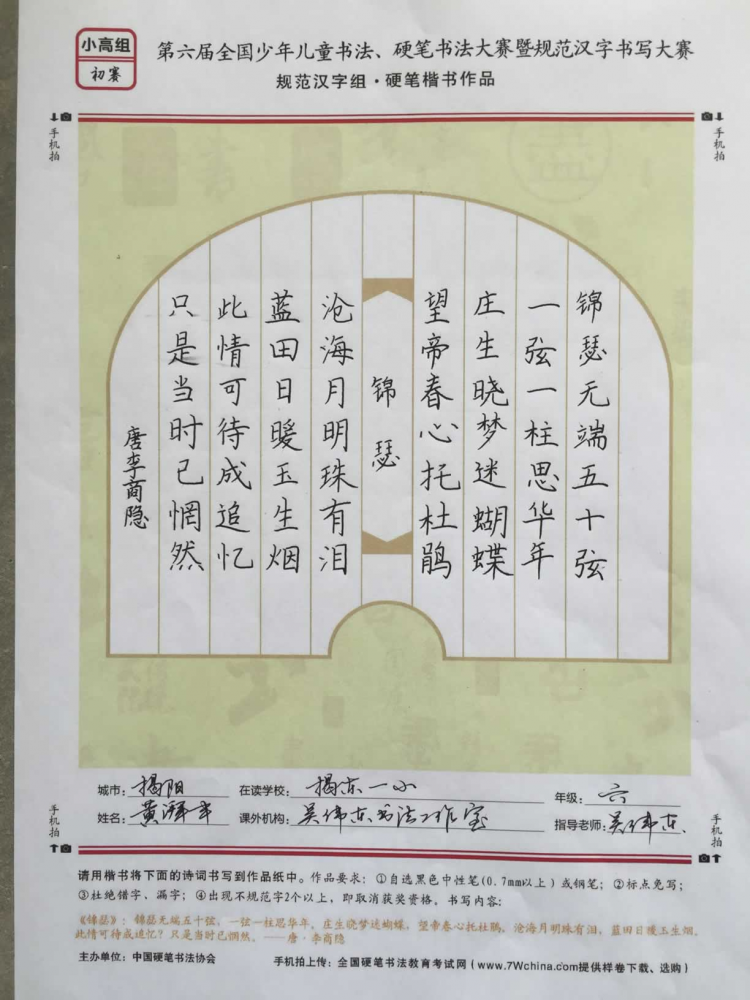 小高组
初赛
第六届全国少年儿童书法、硬笔书法大赛暨规范汉字书写大赛
规范汉字组·硬笔楷书作品
手机拍
手机拍
锦瑟无端五十弦
一弦一柱思华年
庄生晓梦迷蝴蝶
望帝春心托杜鹃
锦瑟
沧海月明珠有泪
蓝田日暖玉生烟
此情可待成追忆
只是当时已惘然
唐李商隐
城市：揭阳 在读学校：揭东一小 年级：六
姓名：黄 课外机构：吴伟东书法工作室 指导老师：吴伟东
手机拍
手机拍
请用楷书将下面的诗词书写到作品纸中。作品要求：①自选黑色中性笔(0.7mm以上)或钢笔；②标点免写；
③杜绝错字、漏字；④出现不规范字2个以上，即取消获奖资格。书写内容：
《锦瑟》：锦瑟无端五十弦，一弦一柱思华年。庄生晓梦迷蝴蝶，望帝春心托杜鹃。沧海月明珠有泪，蓝田日暖玉生烟。
此情可待成追忆？只是当时已惘然。——唐·李商隐
主办单位：中国硬笔书法协会 手机拍上传：全国硬笔书法教育考试网（www.7Wchina.com提供样卷下载、选购）